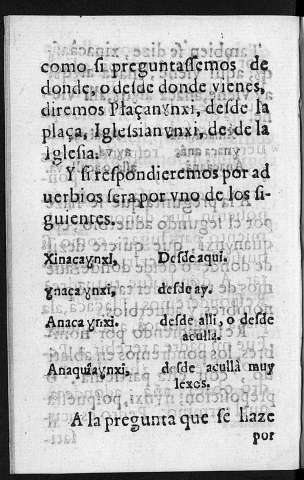 como si preguntassemos de
donde, o desde donde vienes,
diremos Plaçanɣnxi, desde la
plaça, Iglessianɣnxi, desde la
Iglesia.
Y si respondieremos por ad
uerbios sera por vno de los si-
guientes.
Xinacaɣnxi, Desde aqui.
ɣnaçaɣnxi, desde ay.
Anacaɣnxi. desde alli, o desde
aculla.
Anaquiaɣnxi, desde acullà muy
lexos.
A la pregunta que se haze
por